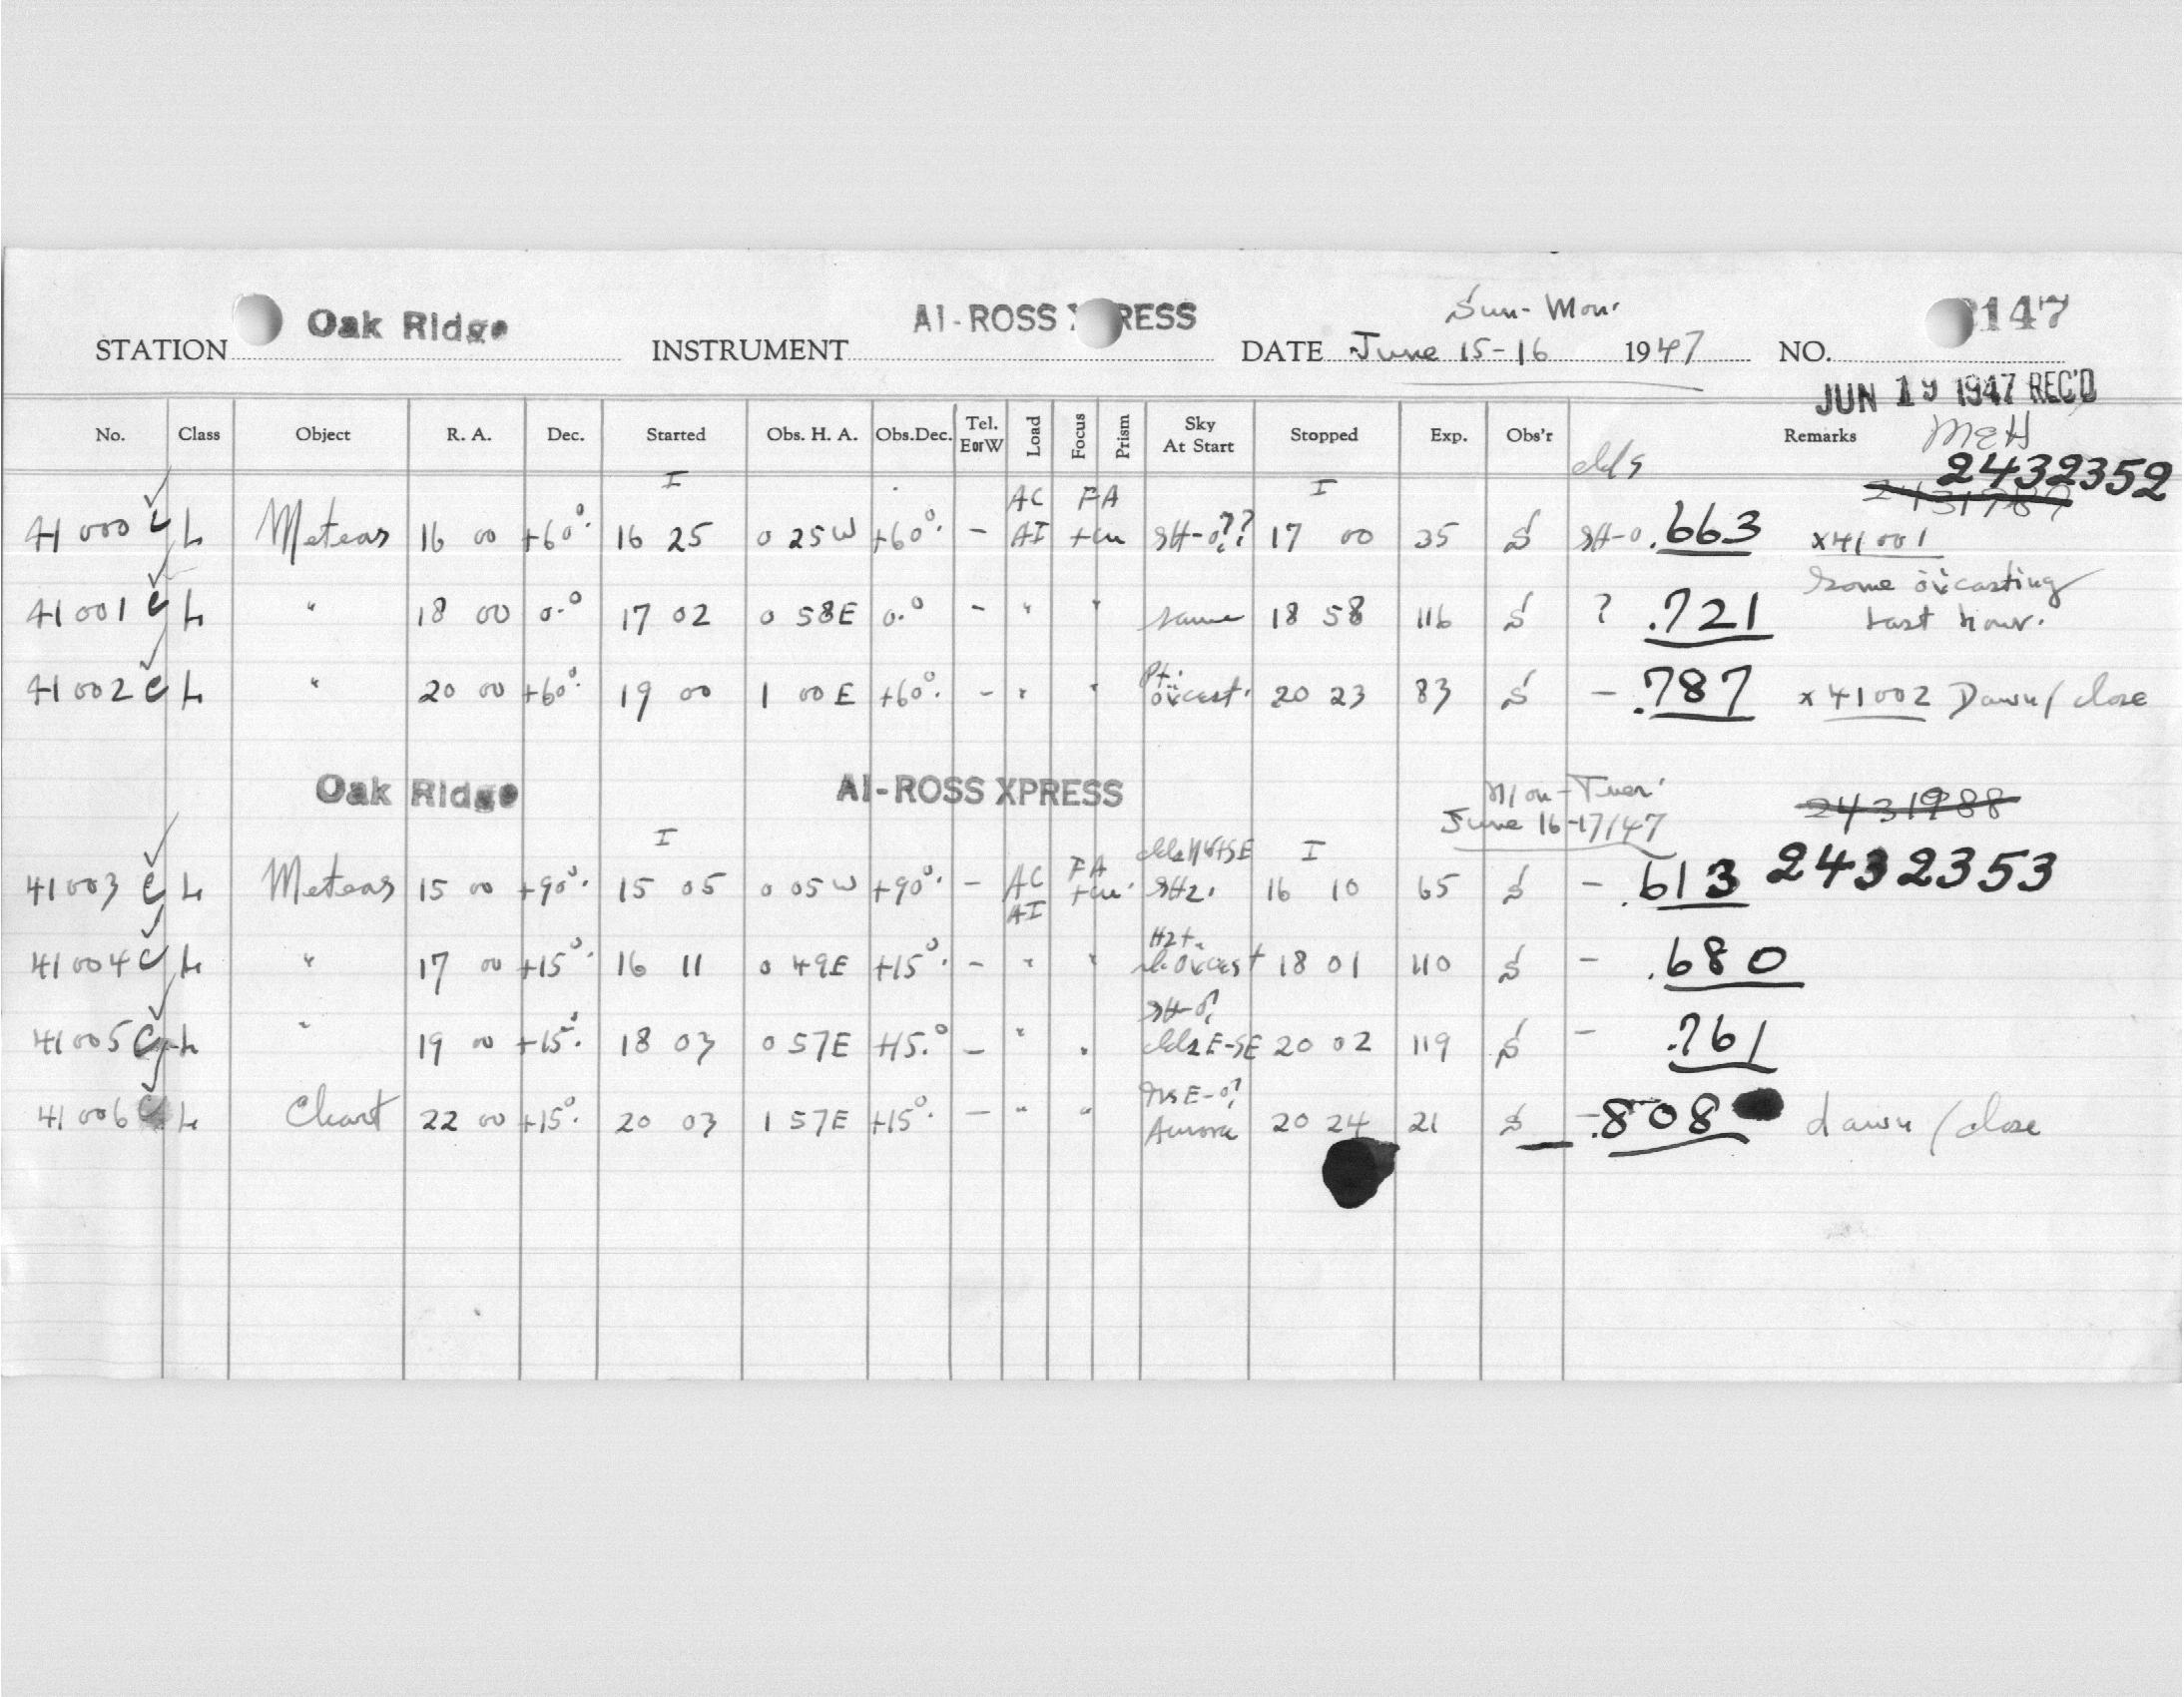 Sun-Mon.
STATION Oak Ridge INSTRUMENT AI-ROSS XPRESS DATE June 15-16 1947 NO. 147
JUN 19 1947 REC'D
MEH
No. Class Object R. A. Dec. Started Obs. H. A. Obs.Dec. Tel. E or W Load Focus Prism Sky At Start Stopped Exp. Obs'r Remarks
clds 2432352
I AC FA I
41000 C L Meteors 16 00 +60°. 16 25 0 25W +60°. - AI +cm SH-0?? 17 00 35 S SH-0 .663 x41001
41001 C L " 18 00 0.° 17 02 0 58E 0.° - " " same 18 58 116 S ? .721 Some ov'casting last hour.
41002 C L " 20 00 +60°. 19 00 1 00E +60°. - " " Pt. ov'cast. 20 23 83 S - .787 x41002 Dawn/close
Oak Ridge AI-ROSS XPRESS Mon-Tues. 2431988
June 16-17/47
I I
41003 C L Meteors 15 00 +90°. 15 05 0 05W +90°. - AC AI FA +cm. SHz. 16 10 65 S - .613 2432353
41004 C L " 17 00 +15°. 16 11 0 49E +15°. - " " 18 01 110 S - .680
41005 C L " 19 00 +15°. 18 03 0 57E +15.° - " " SH-0? clds E-SE 20 02 119 S - .761
41006 C L Chart 22 00 +15°. 20 03 1 57E +15°. - " " Aurora 20 24 21 S - .808 dawn/close